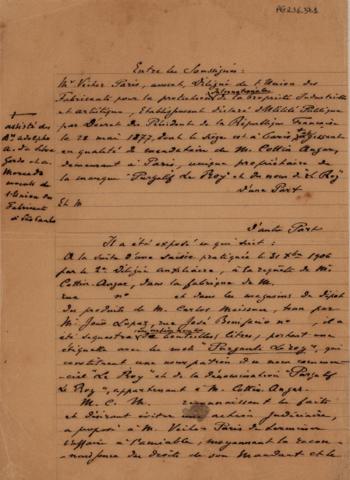 PG 236.321
Entre les Soussignés:
Mr Victor Paris, avocat, Délégué de l'Union des
internationale
Fabricants pour la protection de la Propriété Industrielle
et artistique, Etablissement déclaré d'Utilité Publique
par Décret du Président de la République Française
le 28 mai 1877, dont le siège est à Paris, + agissant
en qualité de mandataire de M. Cottin Anger,
demeurant à Paris, unique propriétaire de
la marque "Purgatif Le Roy" et du nom d'Le Roy
D'une Part
Et M
+
assisté des
Drs Adolpho
A. da
Gordo et
de
l'Union des
Fabricants
à São Paulo
D'autre Part
Il a été exposé ce qui suit:
A la suite d'une saisie pratiquée le 31 Xbre 1906
par le 2e Délégué Auxiliaire, à la requête de Mr
Cottin-Anger, dans la fabrique de M.
rue no et dans les magasins de dépôt
du produits de M. Carlos tenu par
Mr João Lopez, rue José Bonifacio no , il a
été séquestré bouteilles, litres, portant une
étiquette avec le mot "Purgante Le Roy", qui
constituent une usurpation du nom commer-
cial "Le Roy" et de la dénomination "Purgatif
Le Roy", appartenant à M. Cottin-Anger.
M. C. M. reconnaissent les faits
et désirant éviter une action judiciaire,
a proposé à M. Victor Paris de terminer
l'affaire à l'amiable, moyennant la recon-
naissance du droits de son Mandant et le